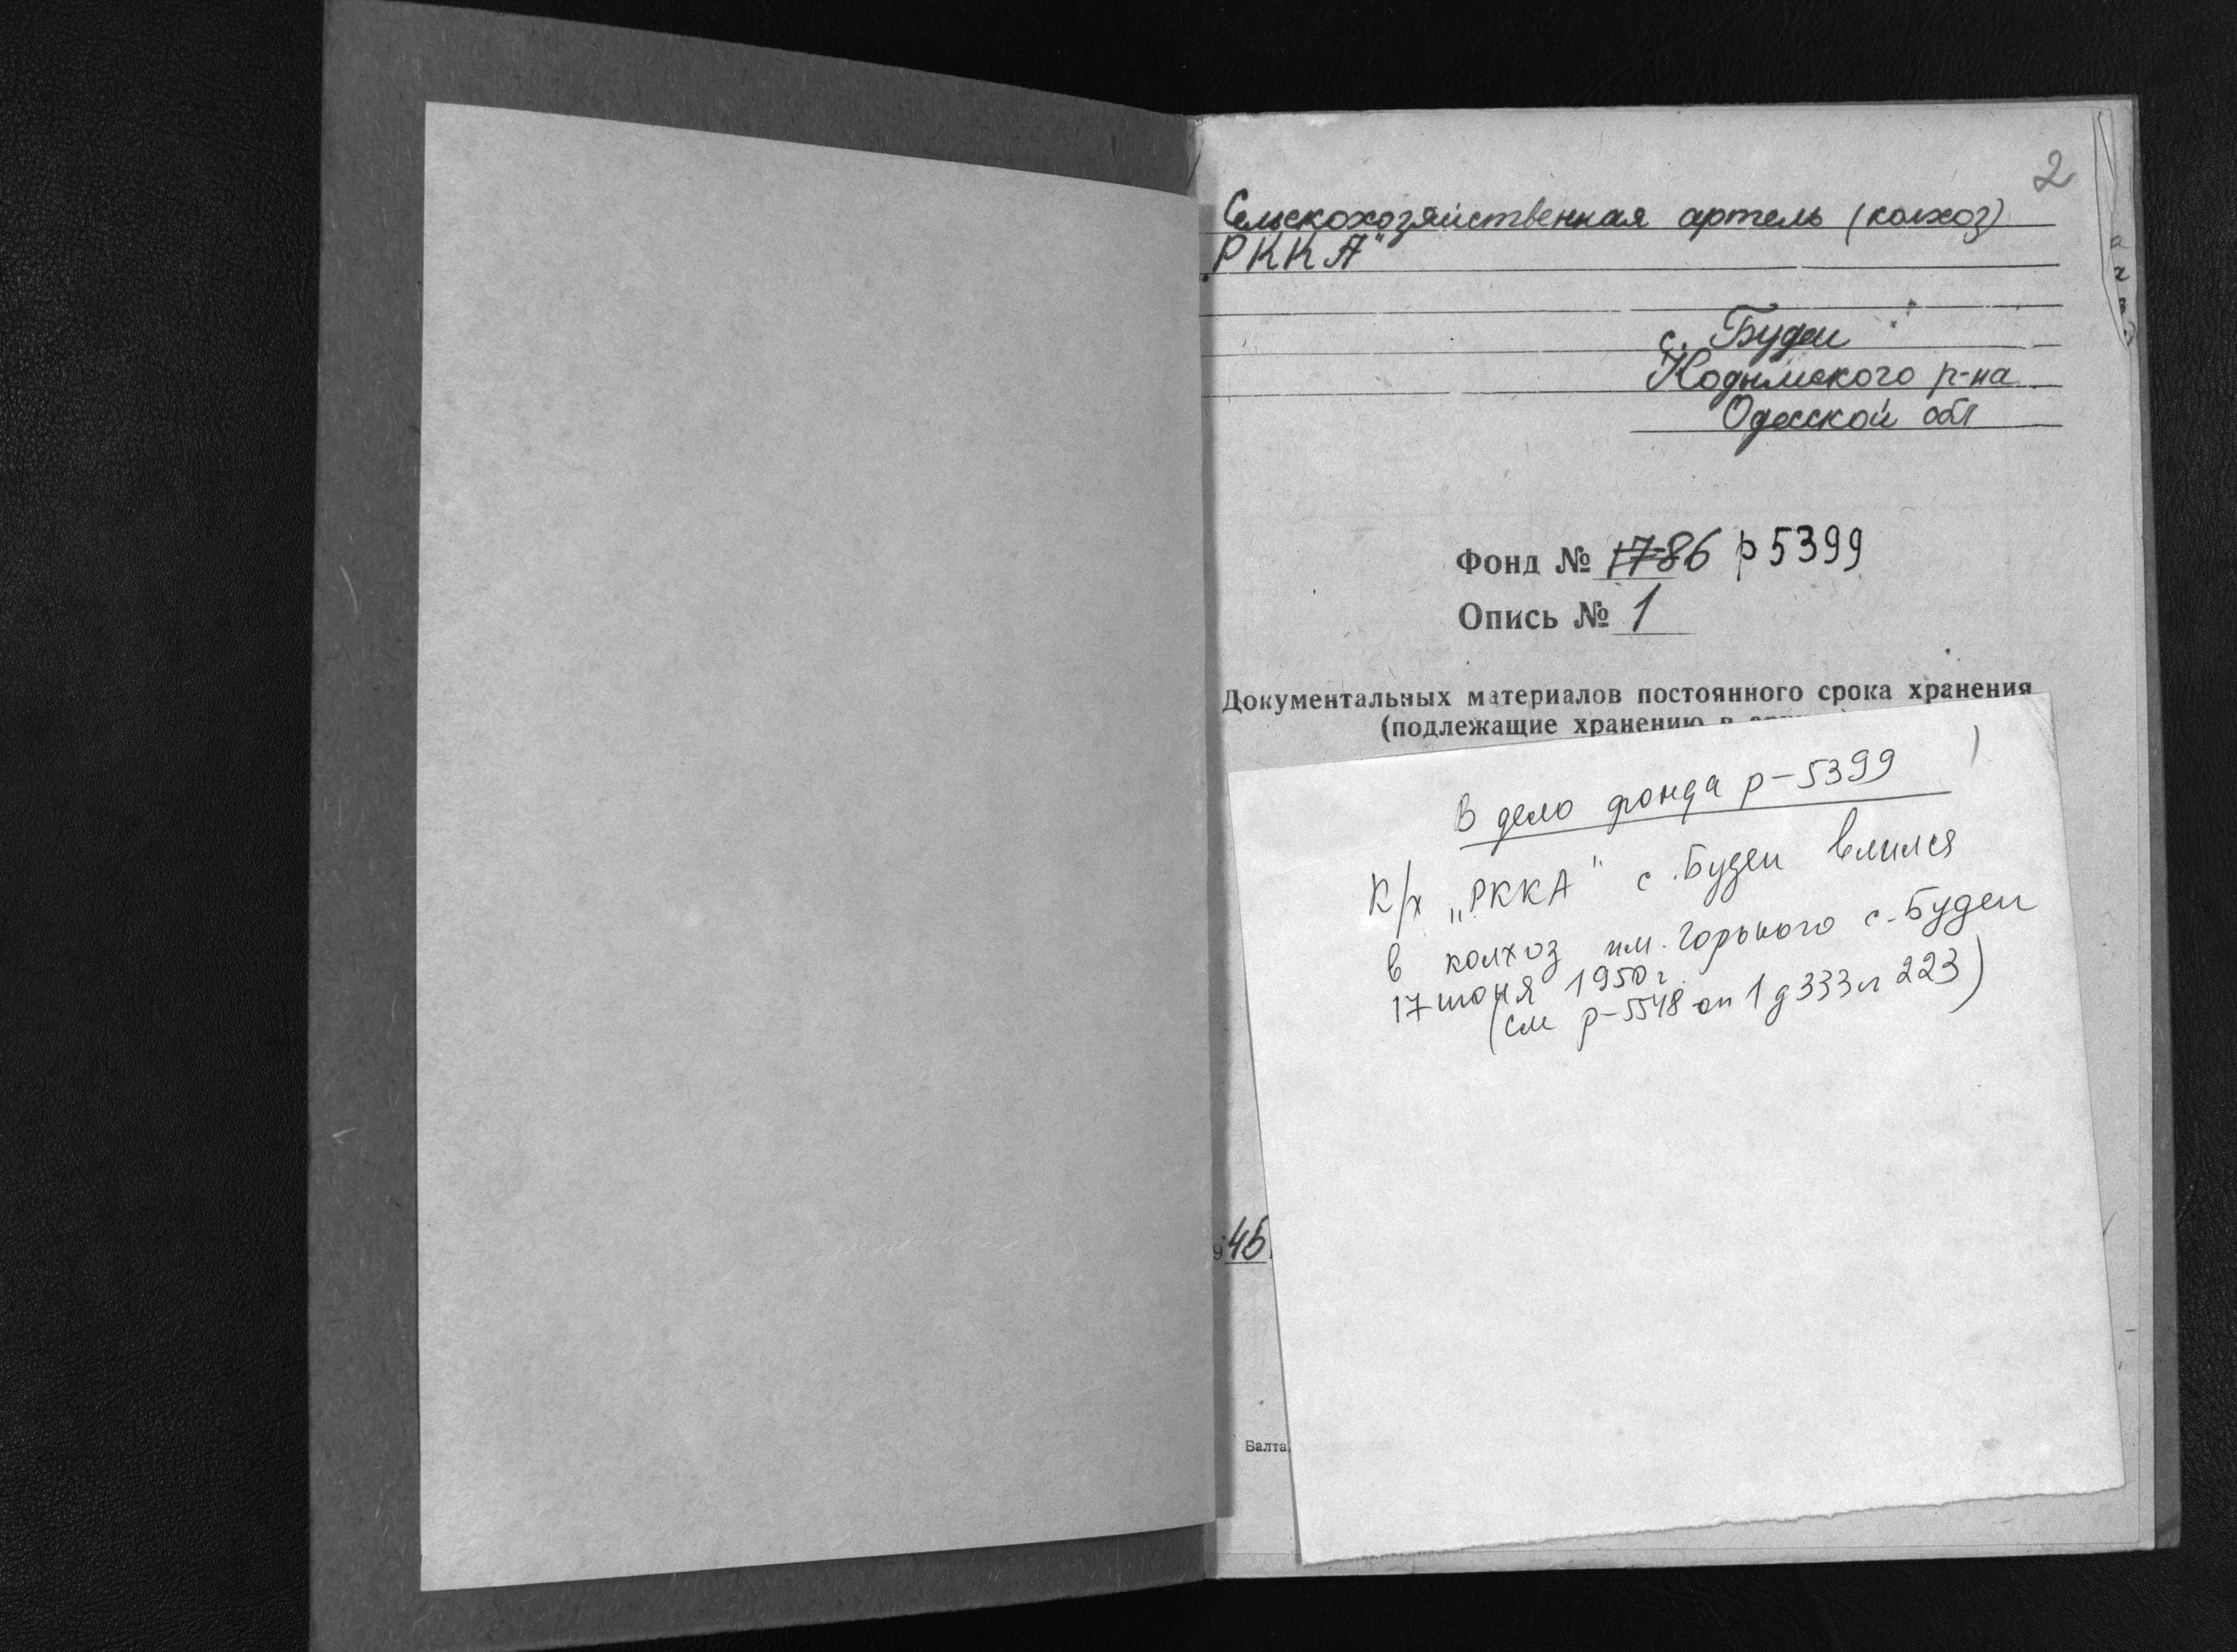 2
Сельскохозяйственная артель (колхоз)
„РККА"
с. Будеи
Кодымского р-на
Одесской обл
Фонд № 1786 р5399
Опись № 1
Документальных материалов постоянного срока хранения
(подлежащие хранению в
1
В дело фонда р-5399
К/х „РККА" с. Будеи влился
в колхоз им. Горького с. Будеи
17 июня 1950 г.
(см р-5548 оп 1 д 333 л 223)
946
Балта,